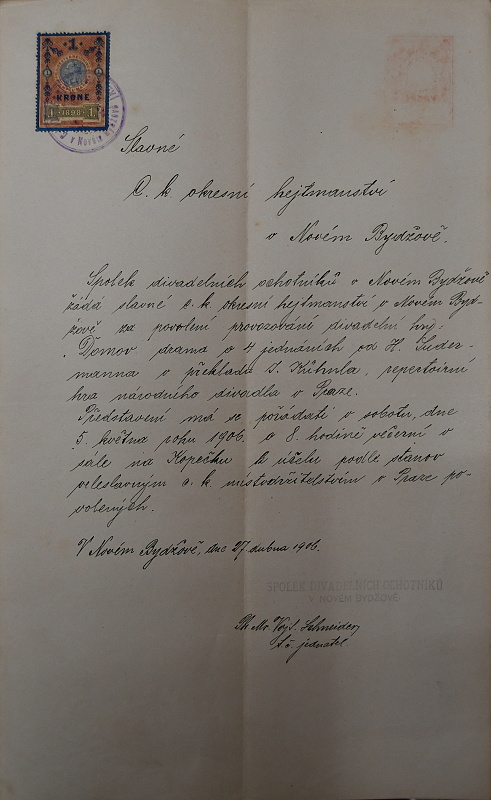 1
KRONE
1 1898 1
V NOVÉM
Slavné
C. k. okresní hejtmanství
v Novém Bydžově.
Spolek divadelních ochotníků v Novém Bydžově
žádá slavné c. k. okresní hejtmanství v Novém Byd-
žově za povolení provozování divadelní hry
"Domov" drama o 4 jednáních od H. Suder-
manna v překladu J. Kühnla, repertoirní
hra národního divadla v Praze.
Představení má se pořádati v sobotu, dne
5. května roku 1906 o 8. hodině večerní v
sále na Kopečku k účelu podle stanov
veleslavným c. k. místodržitelstvím v Praze po-
volených.
V Novém Bydžově, dne 27. dubna 1906.
SPOLEK DIVADELNÍCH OCHOTNÍKŮ
V NOVÉM BYDŽOVĚ
Ph Mr Vojt. Schneider,
t. č. jednatel